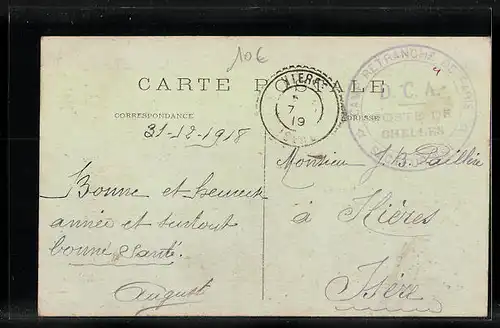 106
CARTE POSTALE
CORRESPONDANCE
ADRESSE
HIERES
7
19
ISERE
CAMP RETRANCHÉ DE PARIS
D.C.A.
POSTE DE
CHELLES
31-12-1918
Bonne et heureuse
année et surtout
bonne santé.
August
Monsieur J B.
à Hières
Isère